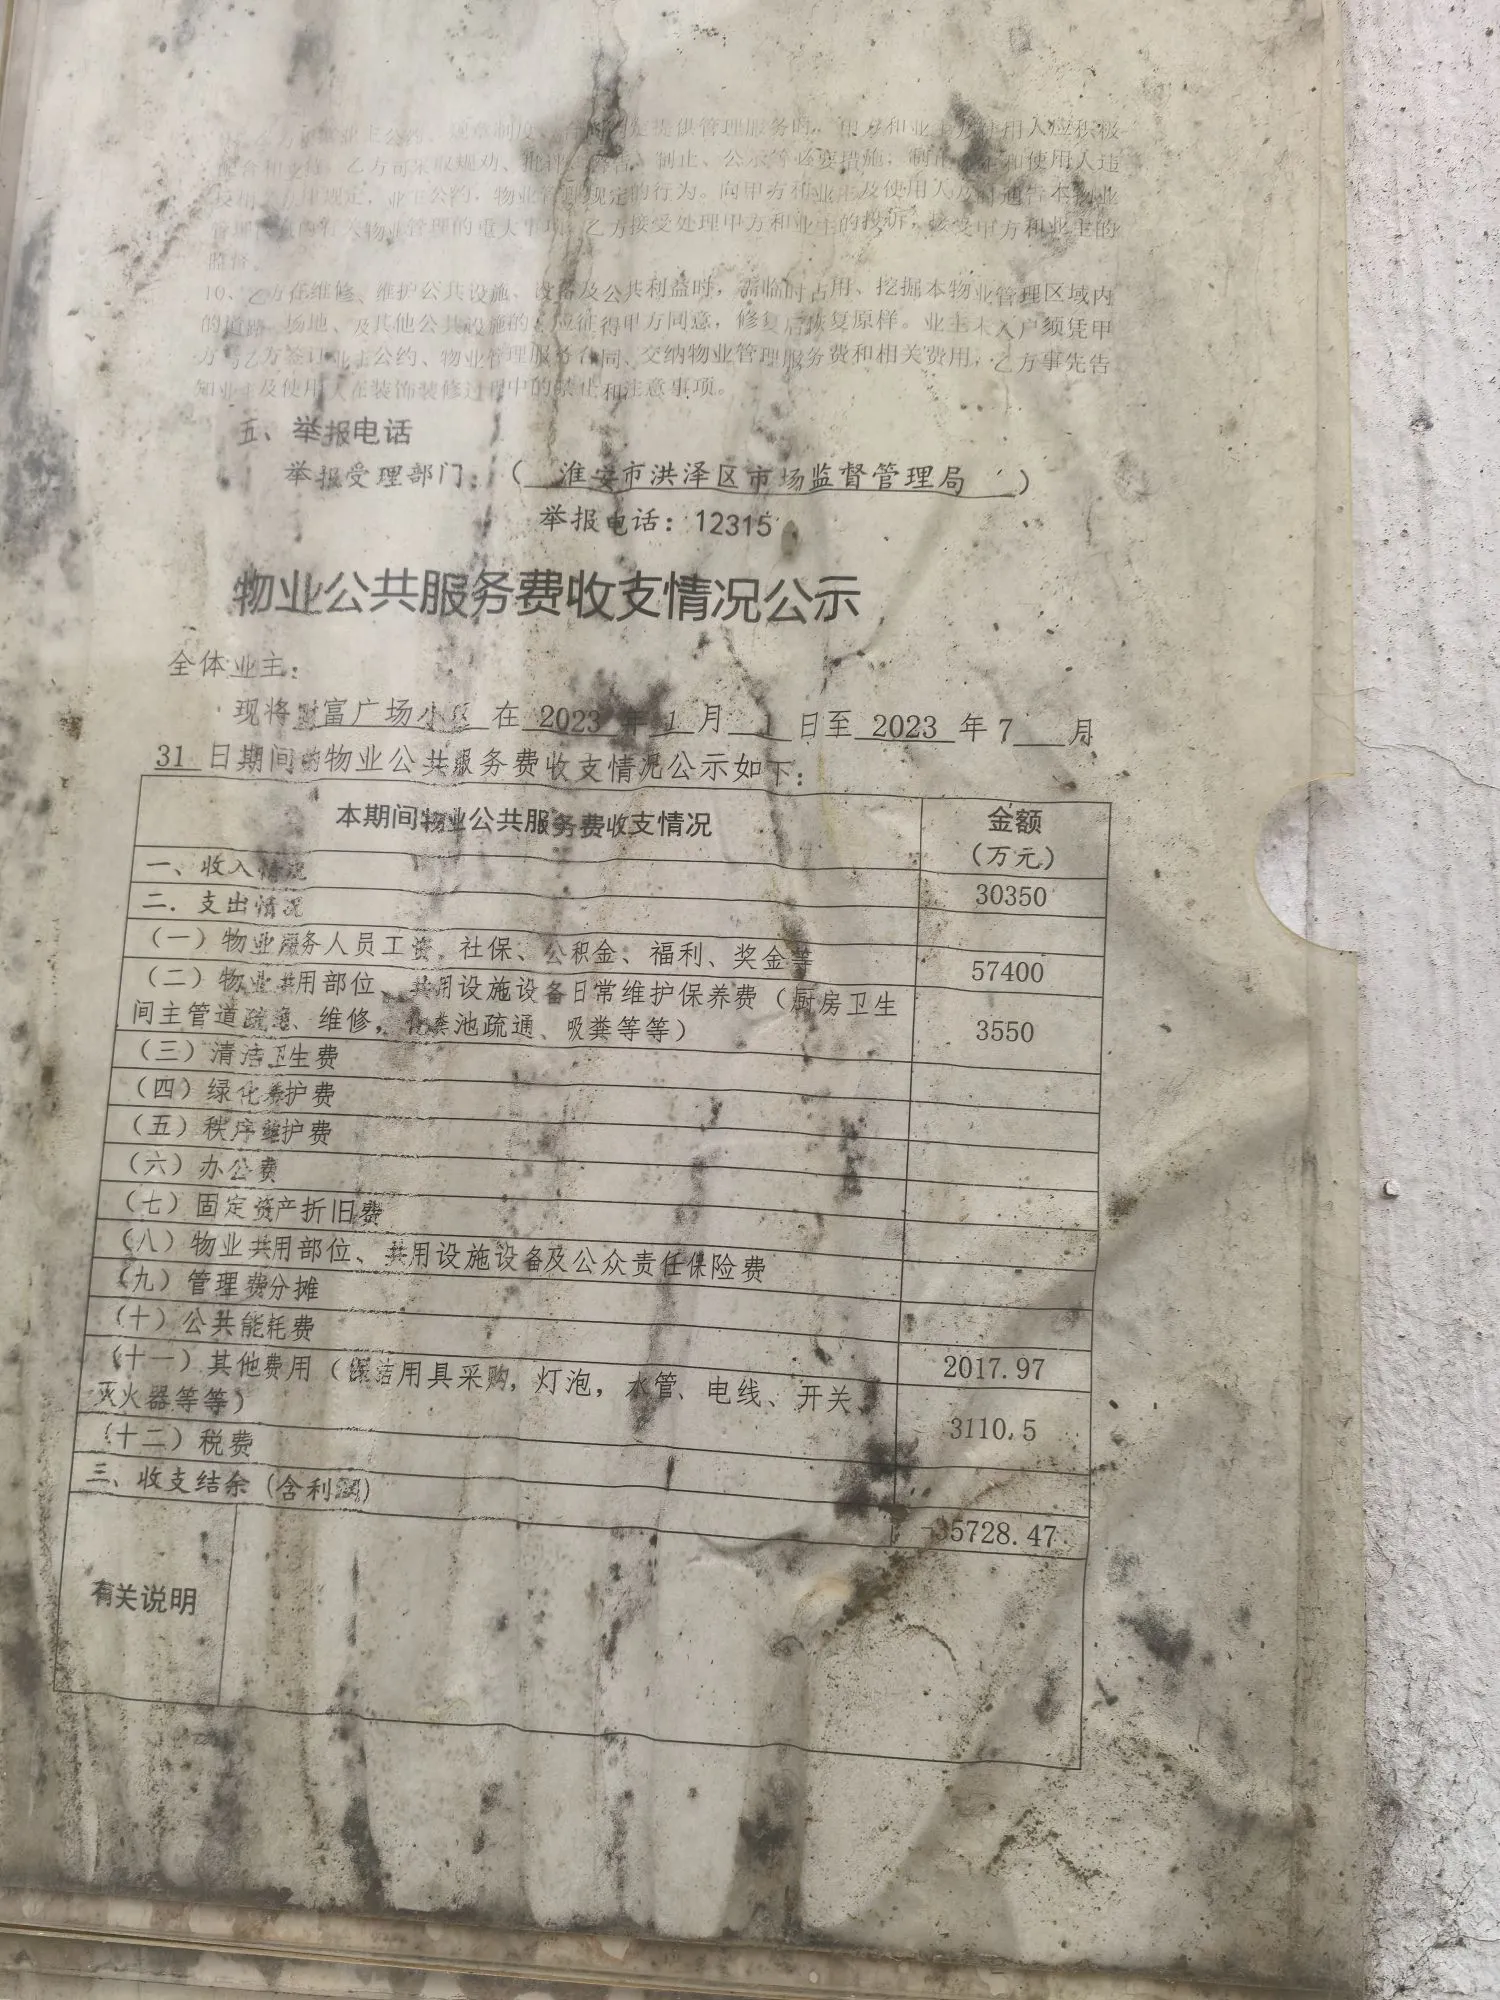 提供管理服务时，甲方和业主及使用人应积极
配合和支持。乙方可采取规劝、批评、警告、制止、公示等必要措施，制止业主和使用人违
业主公约，物业管理规定的行为。向甲方和业主及使用人及时通告本物业
物业管理的重大事项，乙方接受处理甲方和业主的投诉，接受甲方和业主的
监督。
10、乙方在维修、维护公共设施、设备及公共利益时，需临时占用、挖掘本物业管理区域内
的道路、场地、及其他公共设施的，应征得甲方同意，修复后恢复原样。业主未入户须凭甲
方与乙方签订业主公约、物业管理服务合同、交纳物业管理服务费和相关费用，乙方事先告
知业主及使用人在装饰装修过程中的禁止和注意事项。
五、举报电话
举报受理部门：（ 淮安市洪泽区市场监督管理局 ）
举报电话：12315
物业公共服务费收支情况公示
全体业主：
现将财富广场小区 在 2023 年 1 月 1 日至 2023 年 7 月
31 日期间的物业公共服务费收支情况公示如下：
本期间物业公共服务费收支情况 金额
（万元）
一、收入情况 30350
二．支出情况
（一）物业服务人员工资、社保、公积金、福利、奖金等 57400
（二）物业共用部位、共用设施设备日常维护保养费（厨房卫生
间主管道疏通、维修，化粪池疏通、吸粪等等） 3550
（三）清洁卫生费
（四）绿化养护费
（五）秩序维护费
（六）办公费
（七）固定资产折旧费
（八）物业共用部位、共用设施设备及公众责任保险费
（九）管理费分摊
（十）公共能耗费 2017.97
（十一）其他费用（保洁用具采购，灯泡，水管、电线、开关、
灭火器等等） 3110.5
（十二）税费
三、收支结余（含利润） -35728.47
有关说明